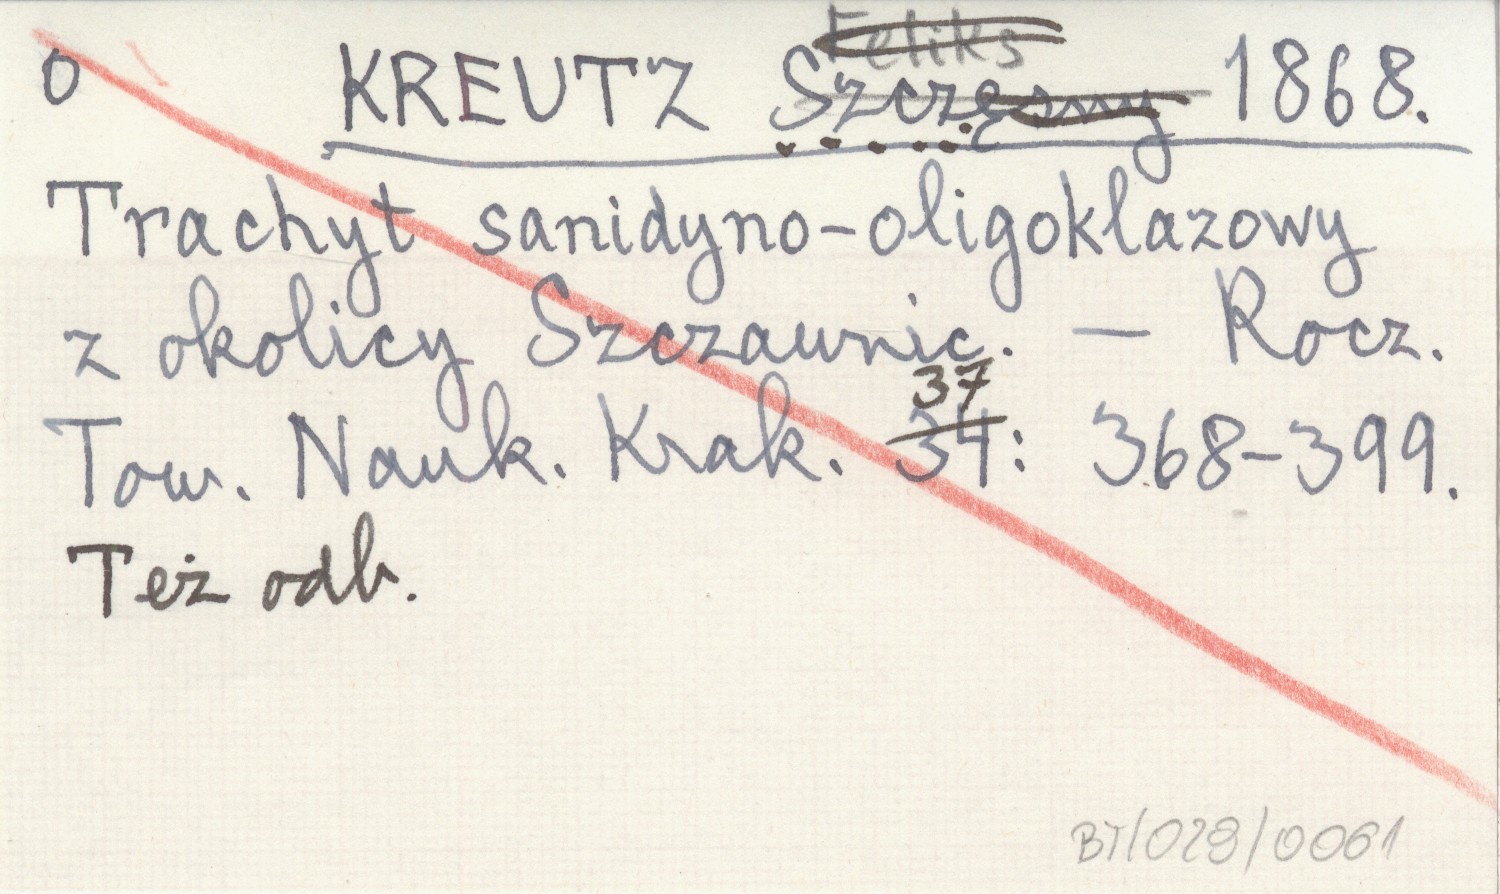 Feliks
o KREUTZ Szczęsny 1868.
Trachyt sanidyno-oligoklazowy
z okolicy Szczawnic. — Rocz.
37
Tow. Nauk. Krak. 34: 368-399.
Też odb.
BT/028/0061